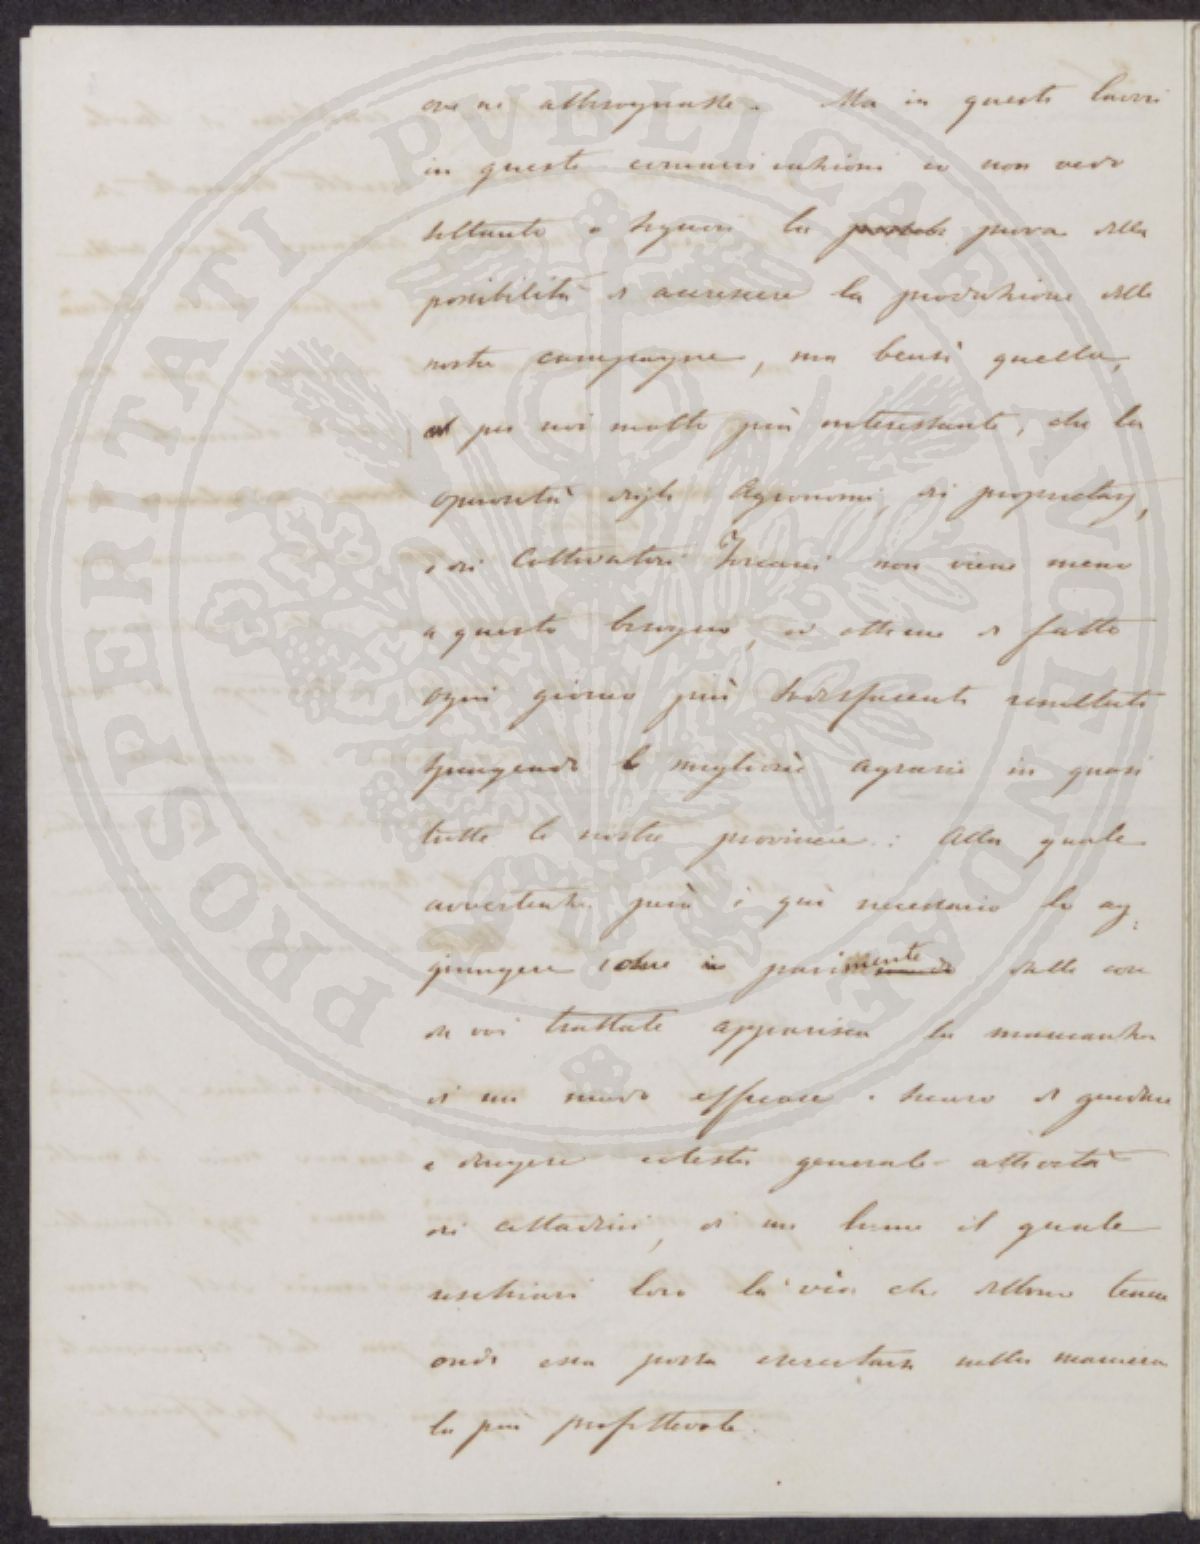 ove ne abbisognasse. Ma in questi lavori
in queste comunicazioni io non vedo
soltanto o Signori la prova della
possibilità di accrescere la produzione delle
nostre campagne, ma bensì quella,
per noi molto più interessante, che la
operosità degli Agronomi, dei proprietarj,
e dei Coltivatori Toscani non viene meno
a questo bisogno, ed ottiene di fatto
ogni giorno più sodisfacenti resultati
spingendo le migliorie agrarie in quasi
tutte le nostre provincie: Alla quale
avvertenza però è qui necessario lo ag-
giungere come parimente dalle cose
da voi trattate apparisca la mancanza
di un modo efficace e sicuro di guidare
e dirigere cotesta generale attività
dei cittadini, di un lume il quale
rischiari loro la via che debbono tenere
onde essa possa esercitarsi nella maniera
la più profittevole.
PROSPERITATI PVBLICAE AVGENDAE